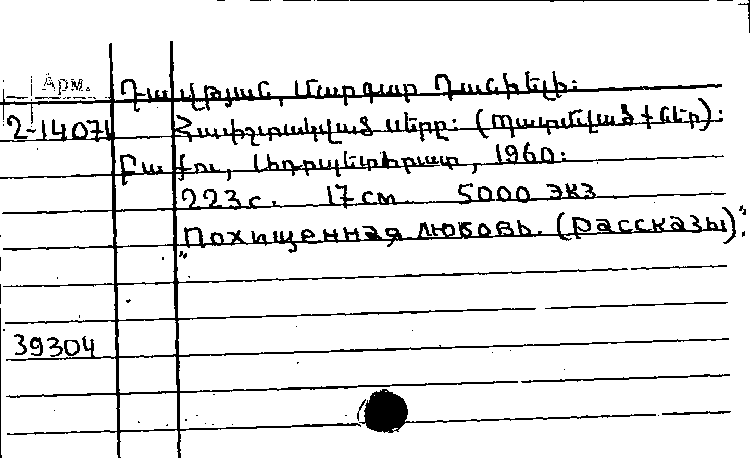 Арм.
Դավթյան, Մարգար Դանիելի:
2-14071
Հափշտակված սերը: (Պատմվածքներ):
Բաքու, Ադրպետհրատ, 1960:
223 с. 17 см. 5000 экз
"Похищенная любовь. (рассказы)".
39304